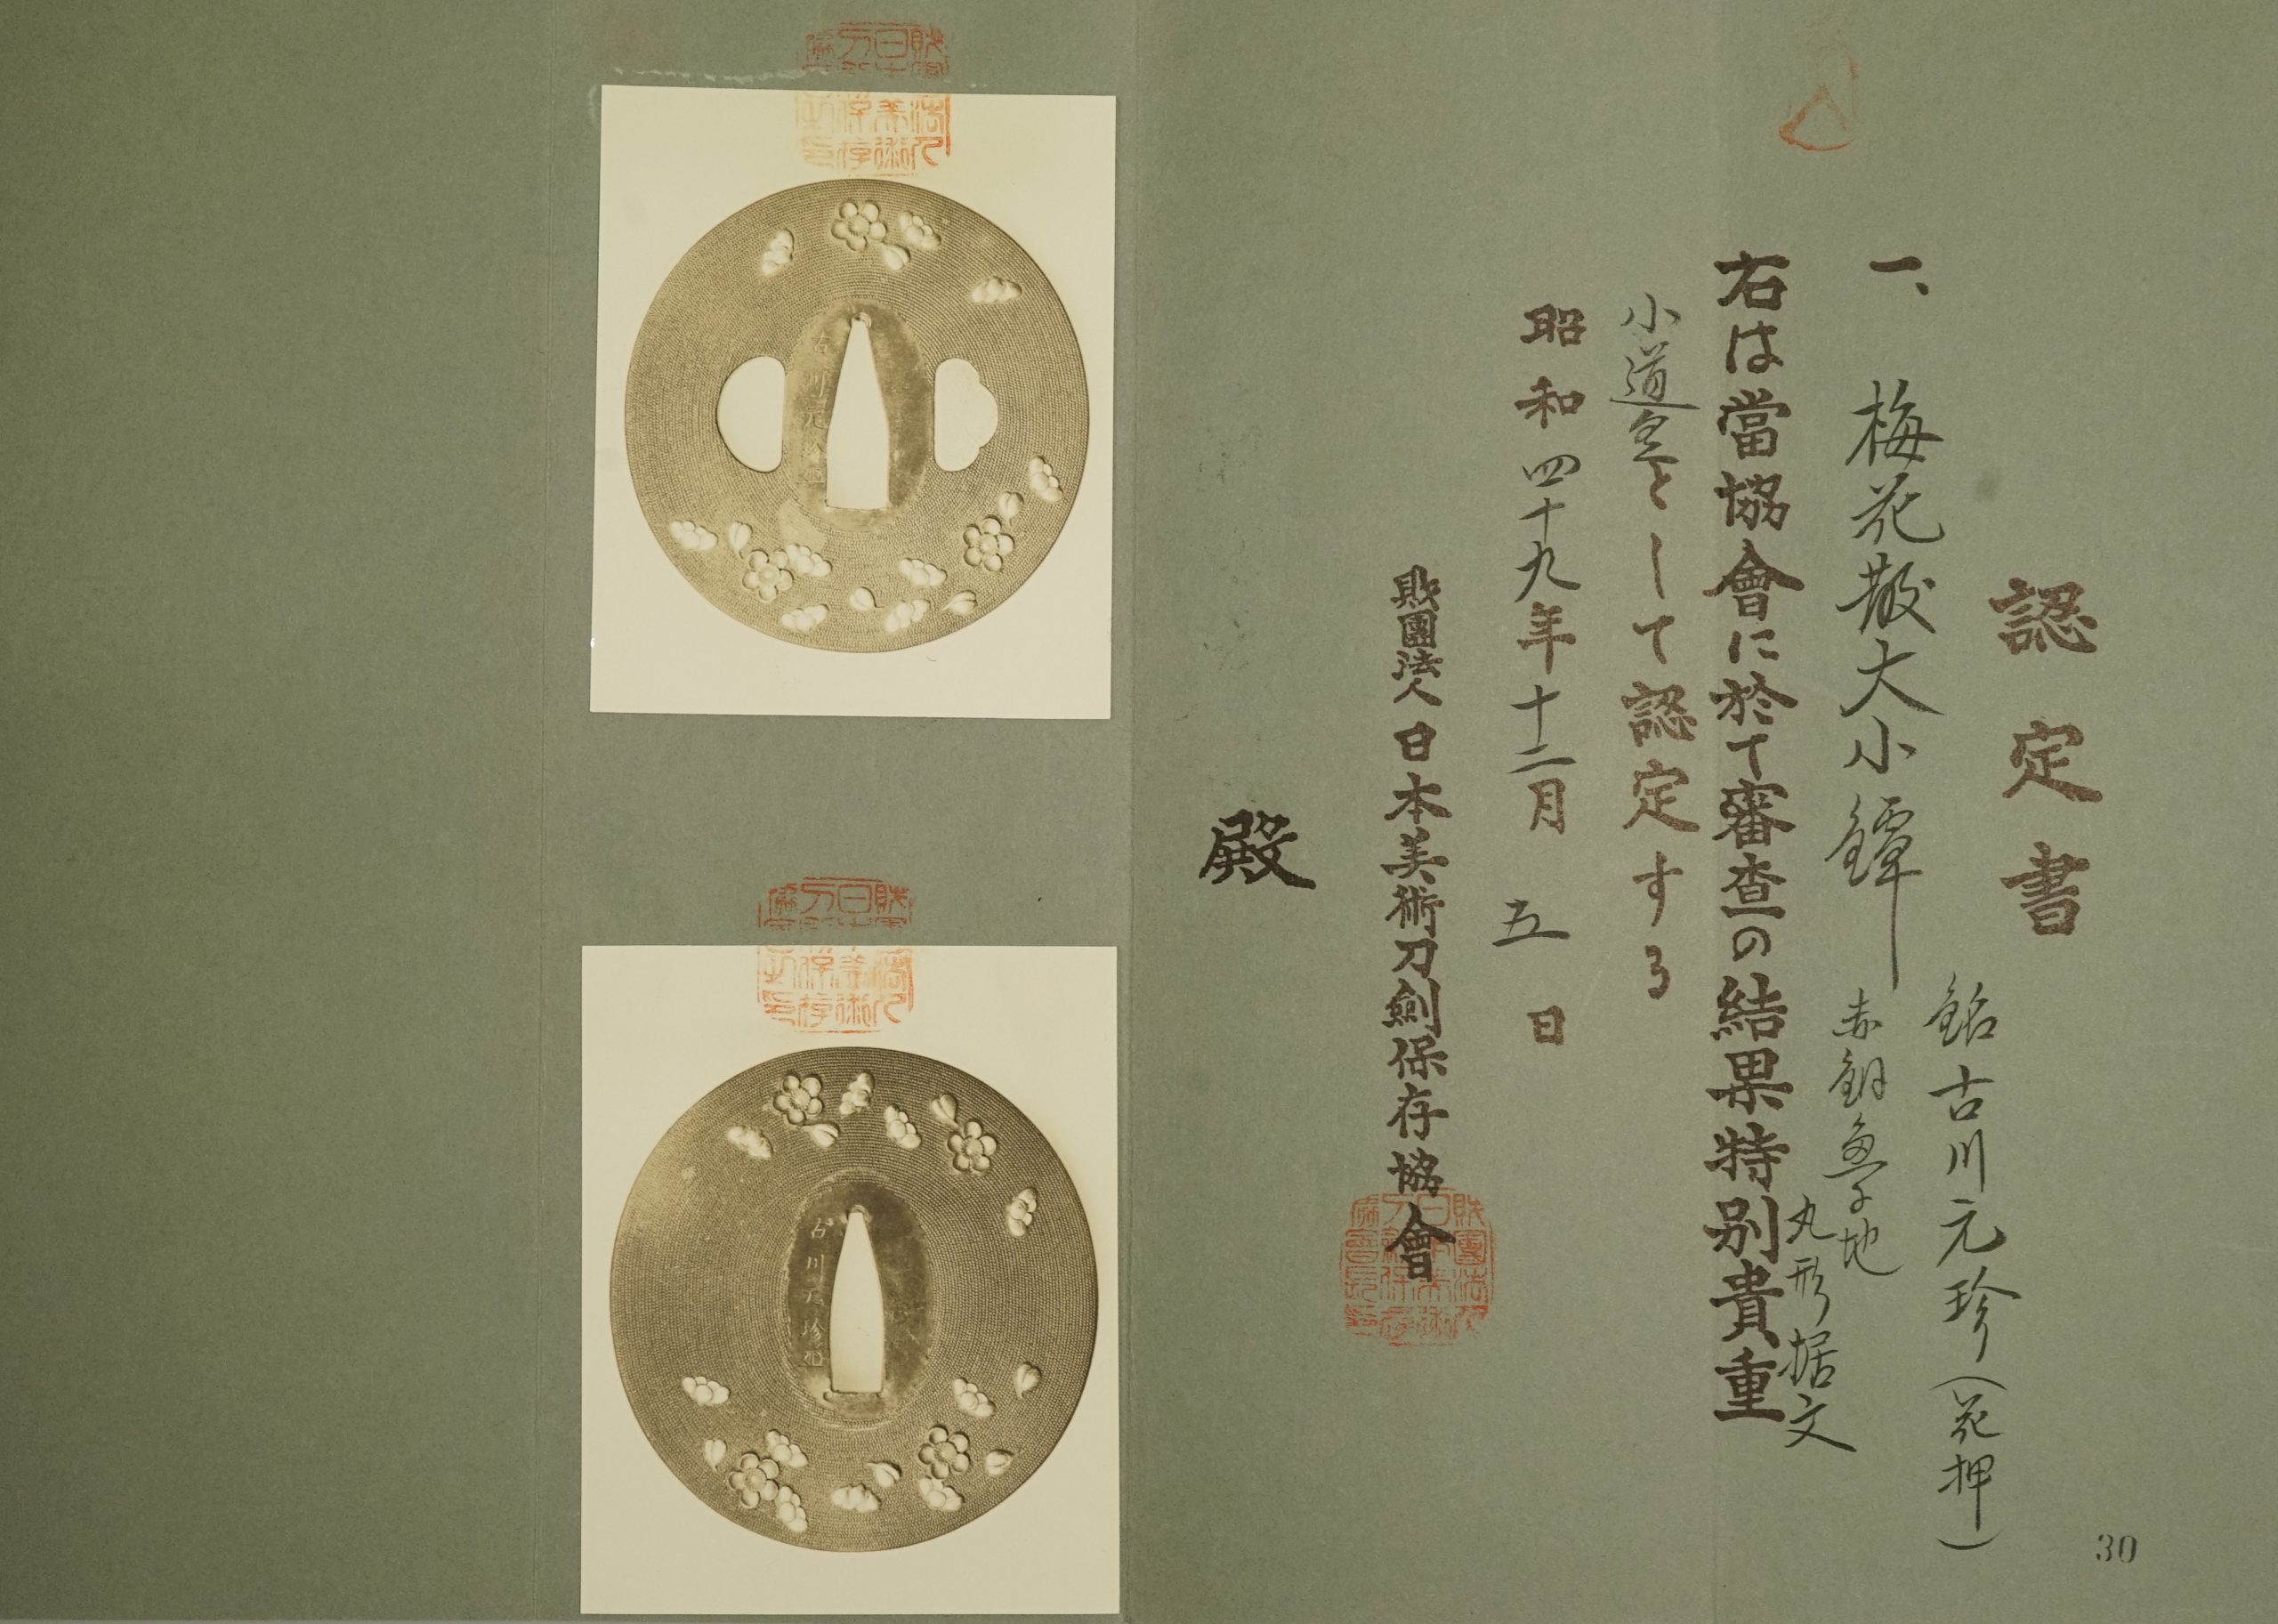 認定書
一、梅花散大小鐔
銘古川元珍（花押）
赤銅魚子地
丸形据文
右は當協會に於て審査の結果特別貴重
小道具として認定する
昭和四十九年十二月五日
財團法人日本美術刀劍保存協會
殿
古川元珍
古川元珍
30